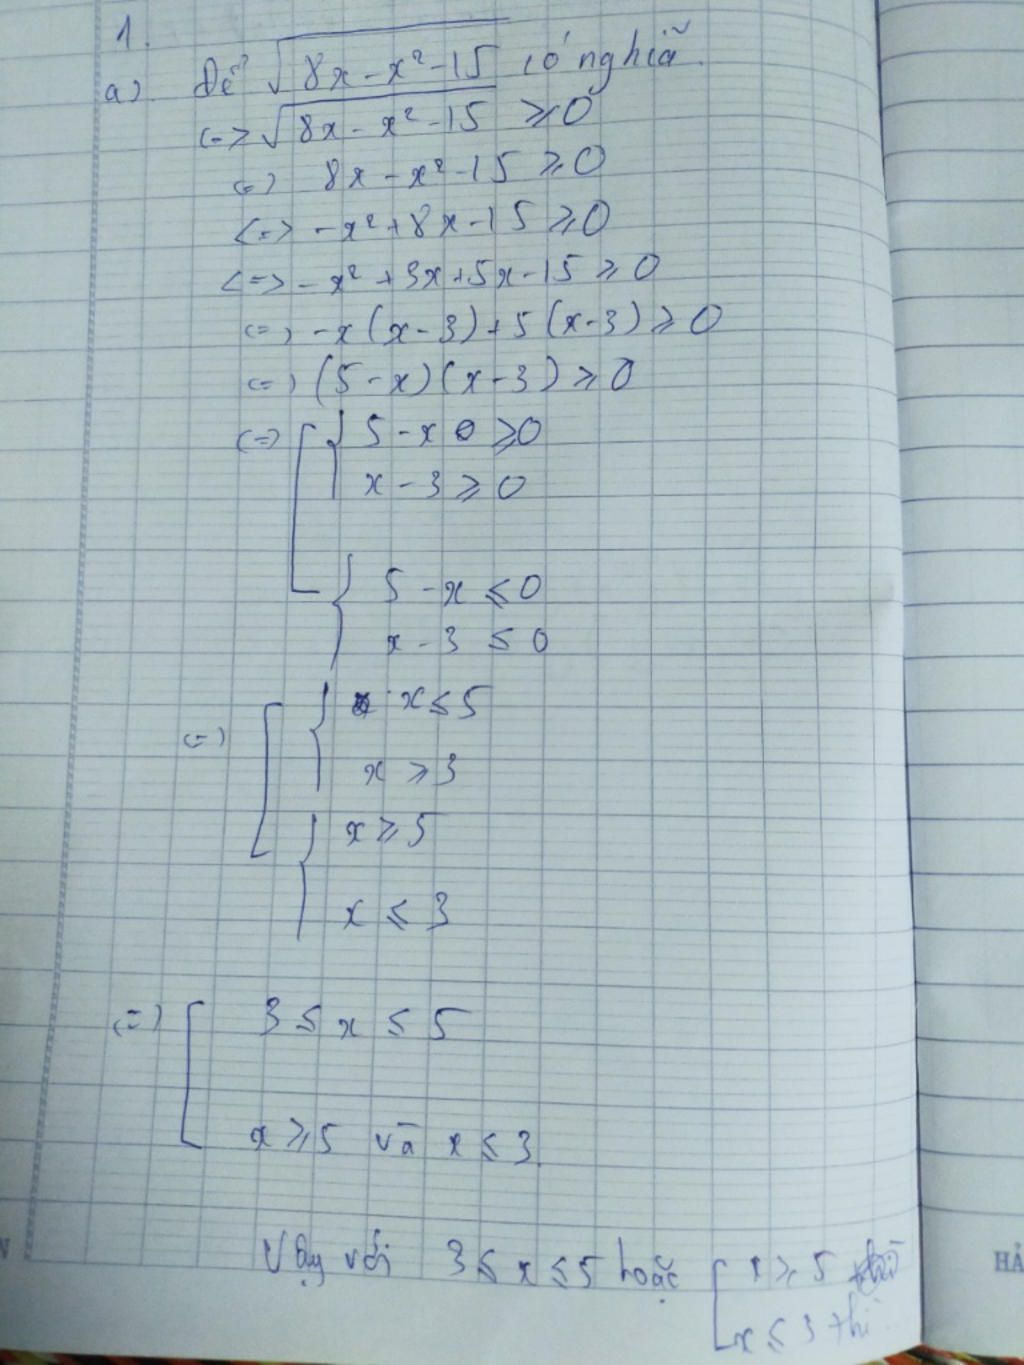 1.
a). Để √(8x - x² - 15) có nghĩa.
<=> √(8x - x² - 15) ⩾ 0
(=) 8x - x² - 15 ⩾ 0
<=> -x² + 8x - 15 ⩾ 0
<=> -x² + 3x + 5x - 15 ⩾ 0
(=) -x(x - 3) + 5(x - 3) ⩾ 0
(=) (5 - x)(x - 3) ⩾ 0
(=) [ { 5 - x ⩾ 0
x - 3 ⩾ 0
{ 5 - x ⩽ 0
x - 3 ⩽ 0
(=) [ { x ⩽ 5
x ⩾ 3
{ x ⩾ 5
x ⩽ 3
(=) [ 3 ⩽ x ⩽ 5
x ⩾ 5 và x ⩽ 3.
Vậy với 3 ⩽ x ⩽ 5 hoặc [ x ⩾ 5
x ⩽ 3 thì
HẢ